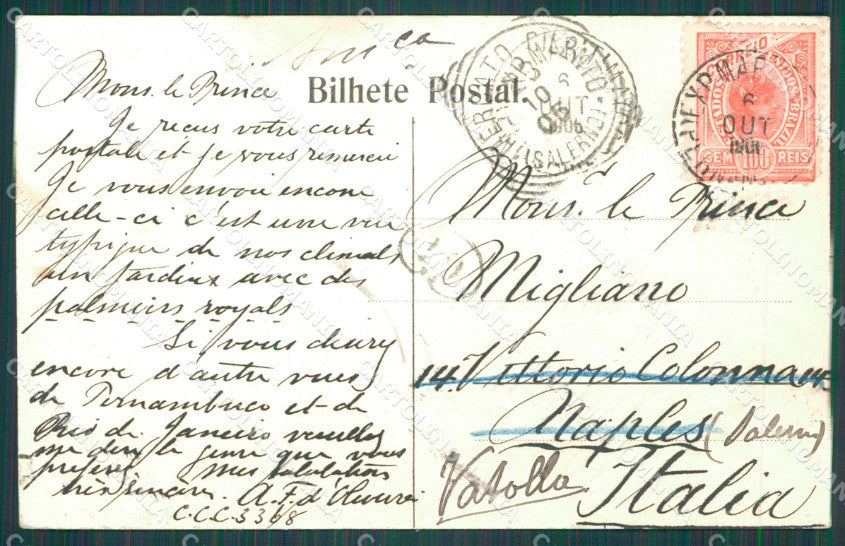 Bilhete Postal.
Mons. le Prince
Je reçus votre carte
postale et je vous remercie
Je vous envoie encore
celle-ci c'est une vue
typique de nos climats
un jardin avec des
palmeirs royals
Si vous
encore d'autre vues
de Pernambuco et de
Rio de Janeiro
me dire le genre que vous
preferez Mes salutations
A. F. d'Oliveira
C.C.C. 3368
Mons. le Prince
Migliano
14 Vittorio Colonna
Naples
Vatolla
Italia
EXP. MAR
6
OUT
CEM 100 REIS
BRAZIL
6
OUT
(SALERNO)
CARTOLINOMANIA